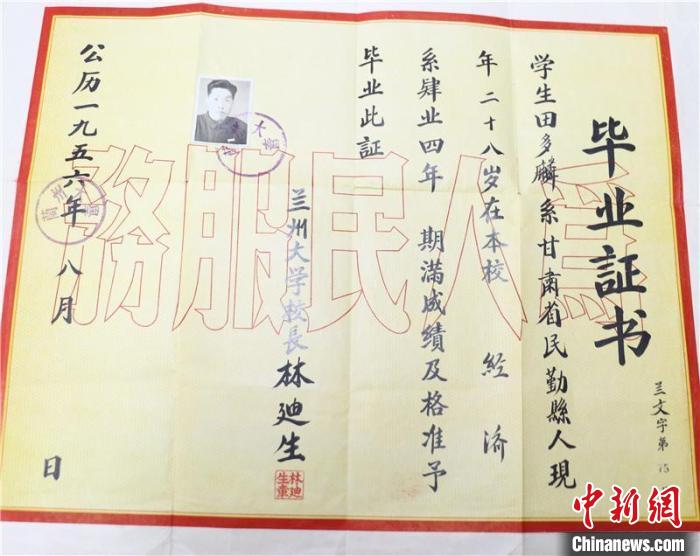 毕业証书
兰文字第 75
学生田多麟系甘肃省民勤縣人現
年二十八岁在本校 经济
系肄业四年 期滿成績及格准予
毕业此証
兰州大学校長 林迪生
林迪生章
公历一九五六年 八月 日
務服民人為
中新网
Chinanews.com